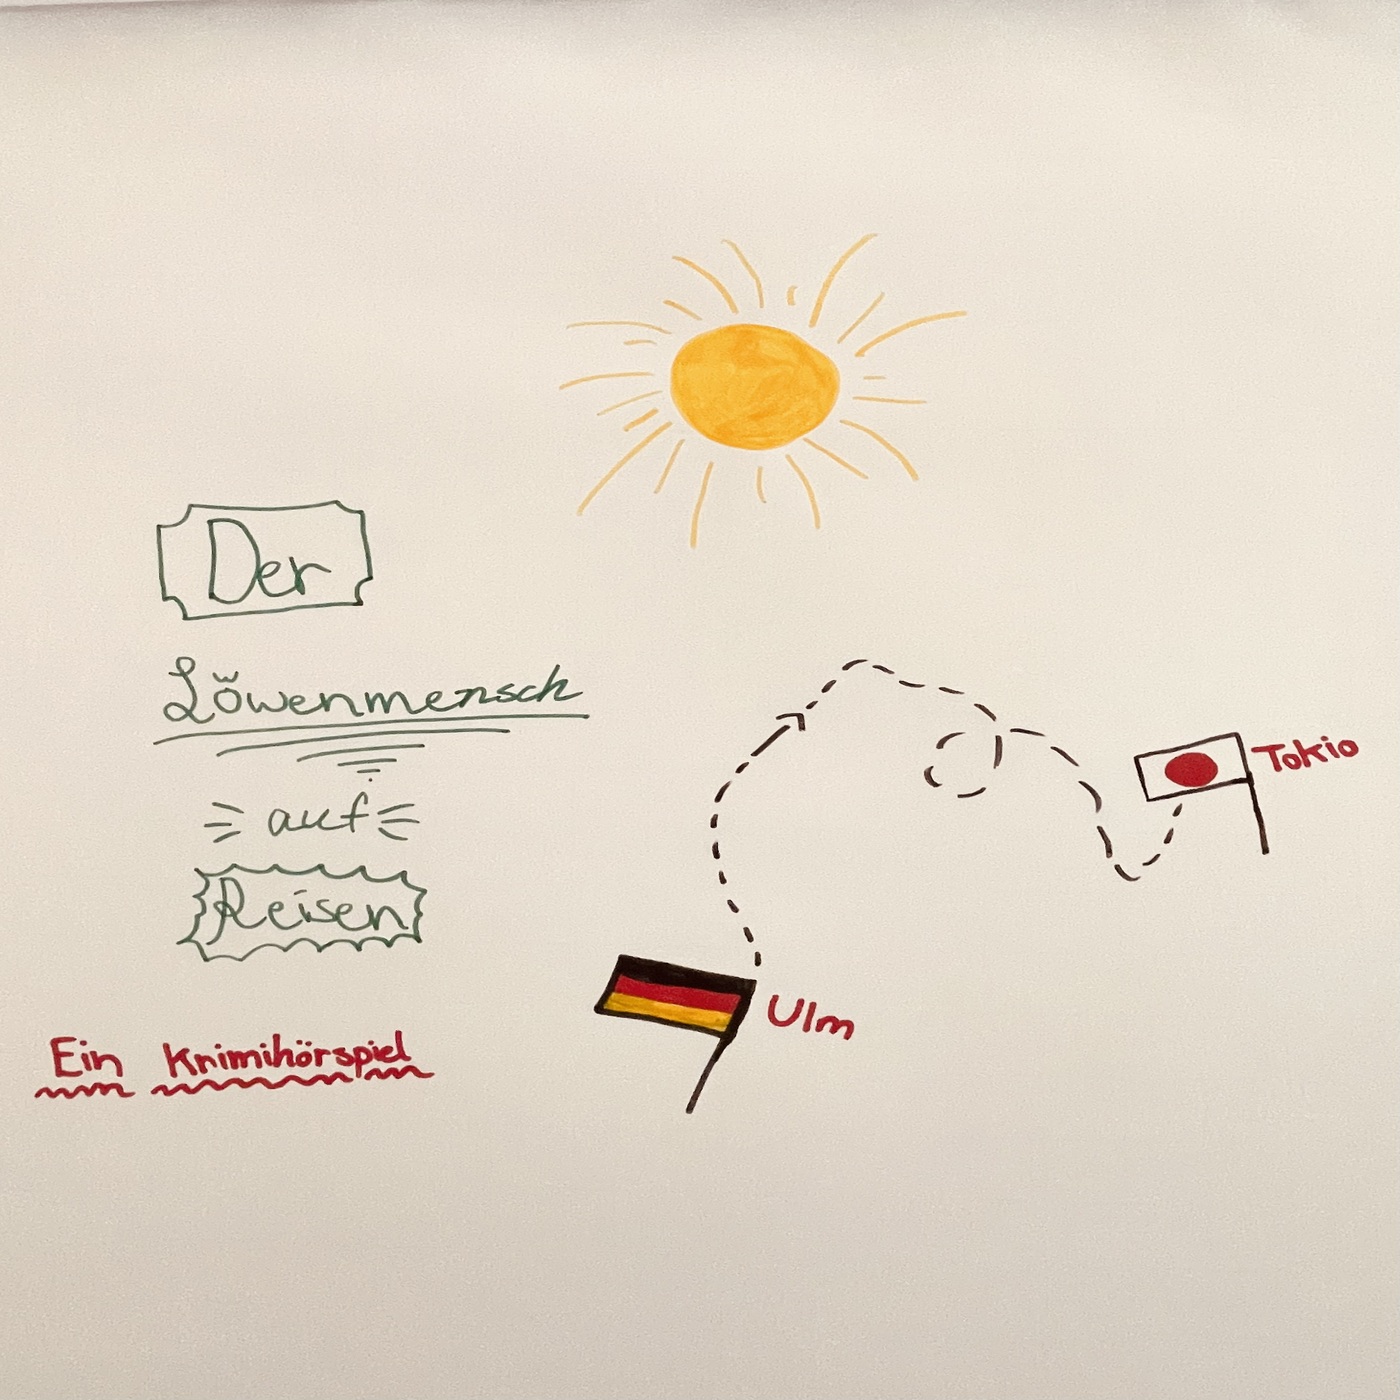 Der
Löwenmensch
auf
Reisen
Ein Krimihörspiel
Tokio
Ulm